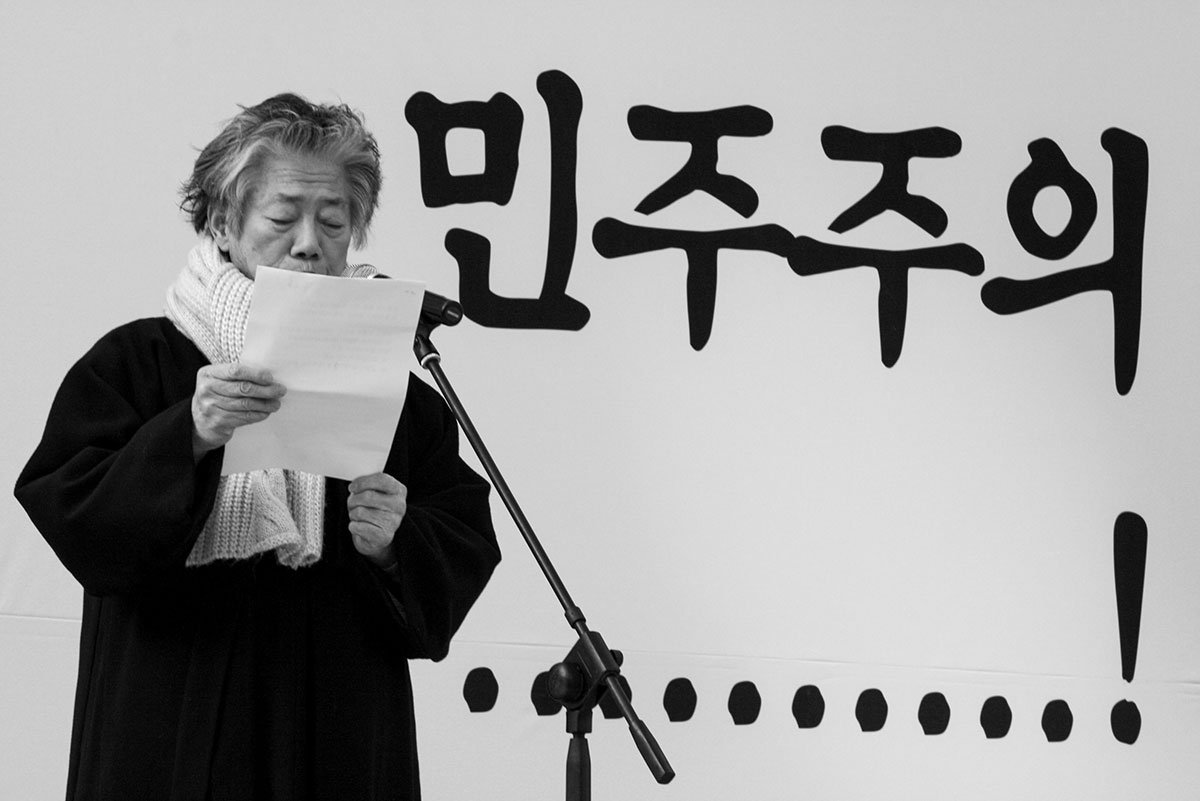 민주주의
...........!